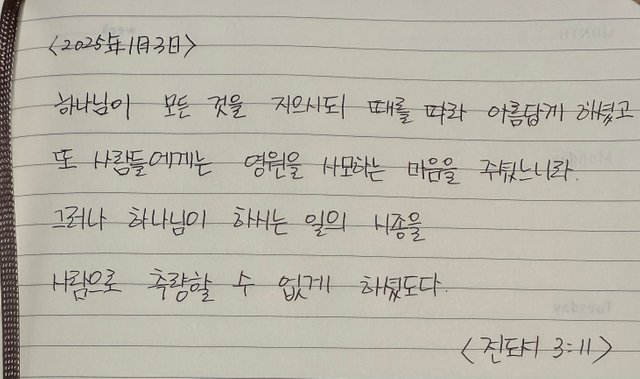 MONTH
week
<2025年1月3日>
하나님이 모든 것을 지으시되 때를 따라 아름답게 하셨고
또 사람들에게는 영원을 사모하는 마음을 주셨느니라.
그러나 하나님이 하시는 일의 시종을
사람으로 측량할 수 없게 하셨도다.
Tuesday
<전도서 3:11>